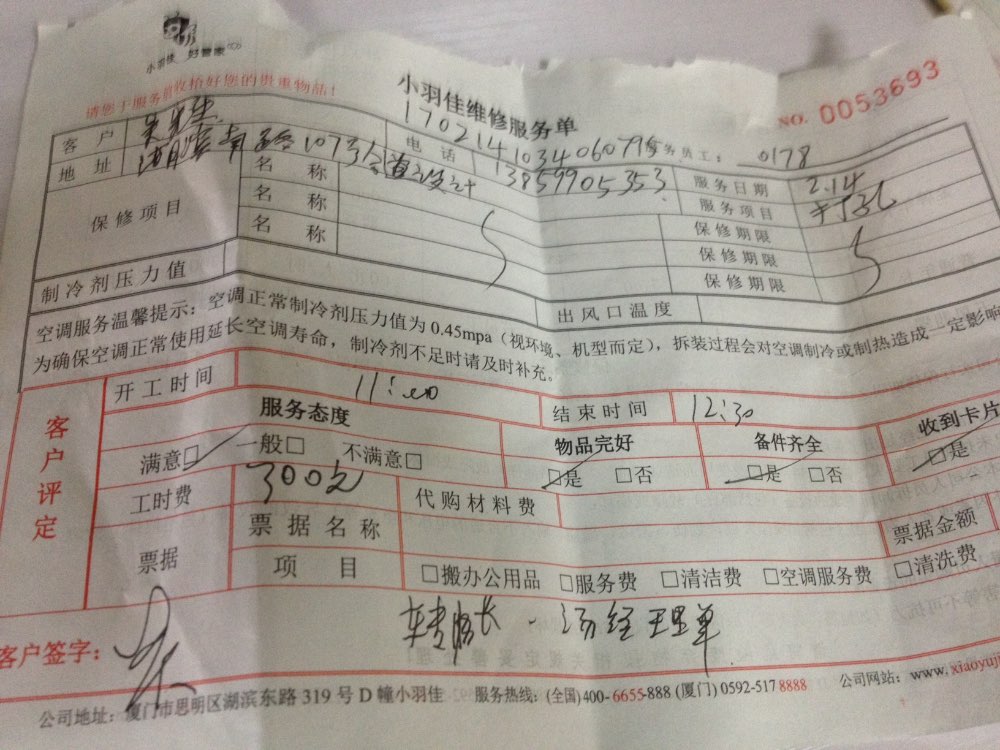 小羽佳 好管家
请您于服务前收拾好您的贵重物品！
小羽佳维修服务单
NO. 0053693
17021410340607796
务员工： 0178
客户 吴先生 电话 13859905353 服务日期 2.14
地址 湖滨南路1073 服务项目 打孔
保修项目
名称 保修期限
名称 保修期限
名称 保修期限
制冷剂压力值 出风口温度
空调服务温馨提示：空调正常制冷剂压力值为 0.45mpa（视环境、机型而定），拆装过程会对空调制冷或制热造成一定影响
为确保空调正常使用延长空调寿命，制冷剂不足时请及时补充。
客户评定
开工时间 11:00 结束时间 12:30
服务态度 物品完好 备件齐全 收到卡片
满意□ 一般□ 不满意□ □是 □否 □是 □否 □是
工时费 300元 代购材料费
票据 票据名称 票据金额
项目 □搬办公用品 □服务费 □清洁费 □空调服务费 □清洗费
客户签字：
公司地址：厦门市思明区湖滨东路 319 号 D 幢小羽佳 服务热线：(全国)400-6655-888 (厦门) 0592-517 8888 公司网站：www.xiaoyuj